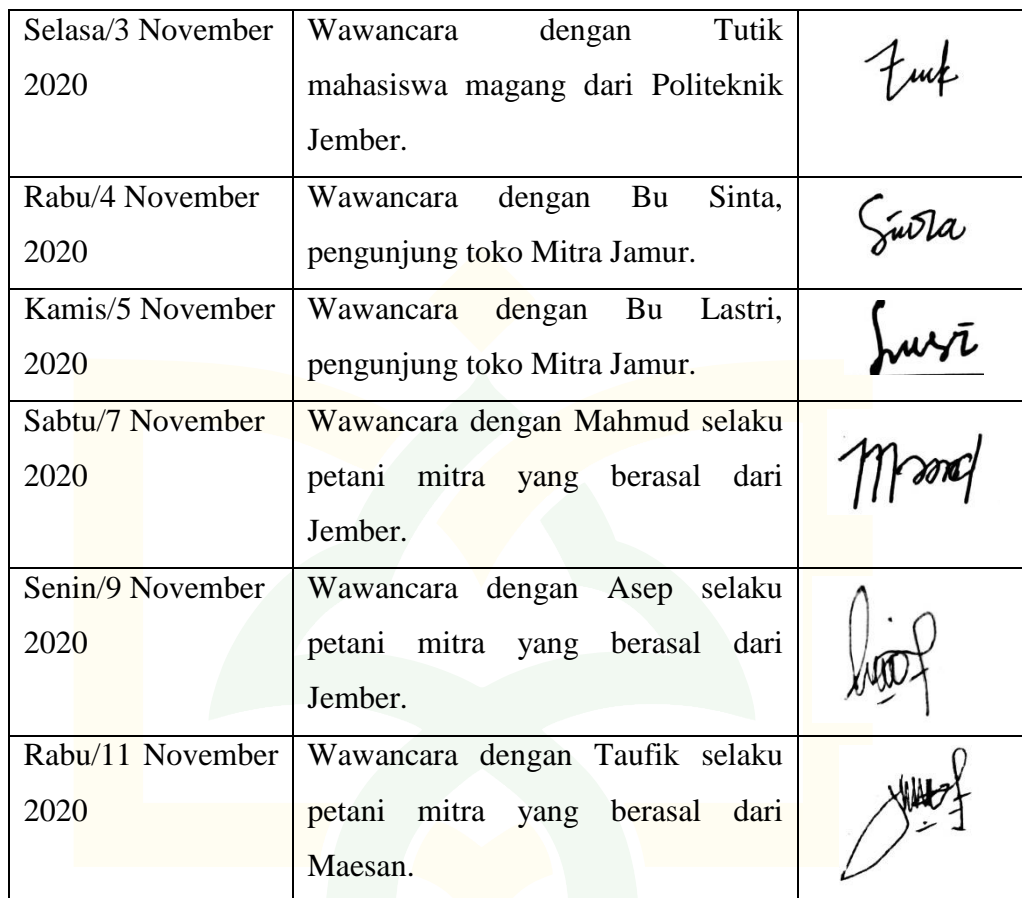 Selasa/3 November
2020
Wawancara dengan Tutik
mahasiswa magang dari Politeknik
Jember.
Rabu/4 November
2020
Wawancara dengan Bu Sinta,
pengunjung toko Mitra Jamur.
Sinta
Kamis/5 November
2020
Wawancara dengan Bu Lastri,
pengunjung toko Mitra Jamur.
Sabtu/7 November
2020
Wawancara dengan Mahmud selaku
petani mitra yang berasal dari
Jember.
Senin/9 November
2020
Wawancara dengan Asep selaku
petani mitra yang berasal dari
Jember.
Rabu/11 November
2020
Wawancara dengan Taufik selaku
petani mitra yang berasal dari
Maesan.